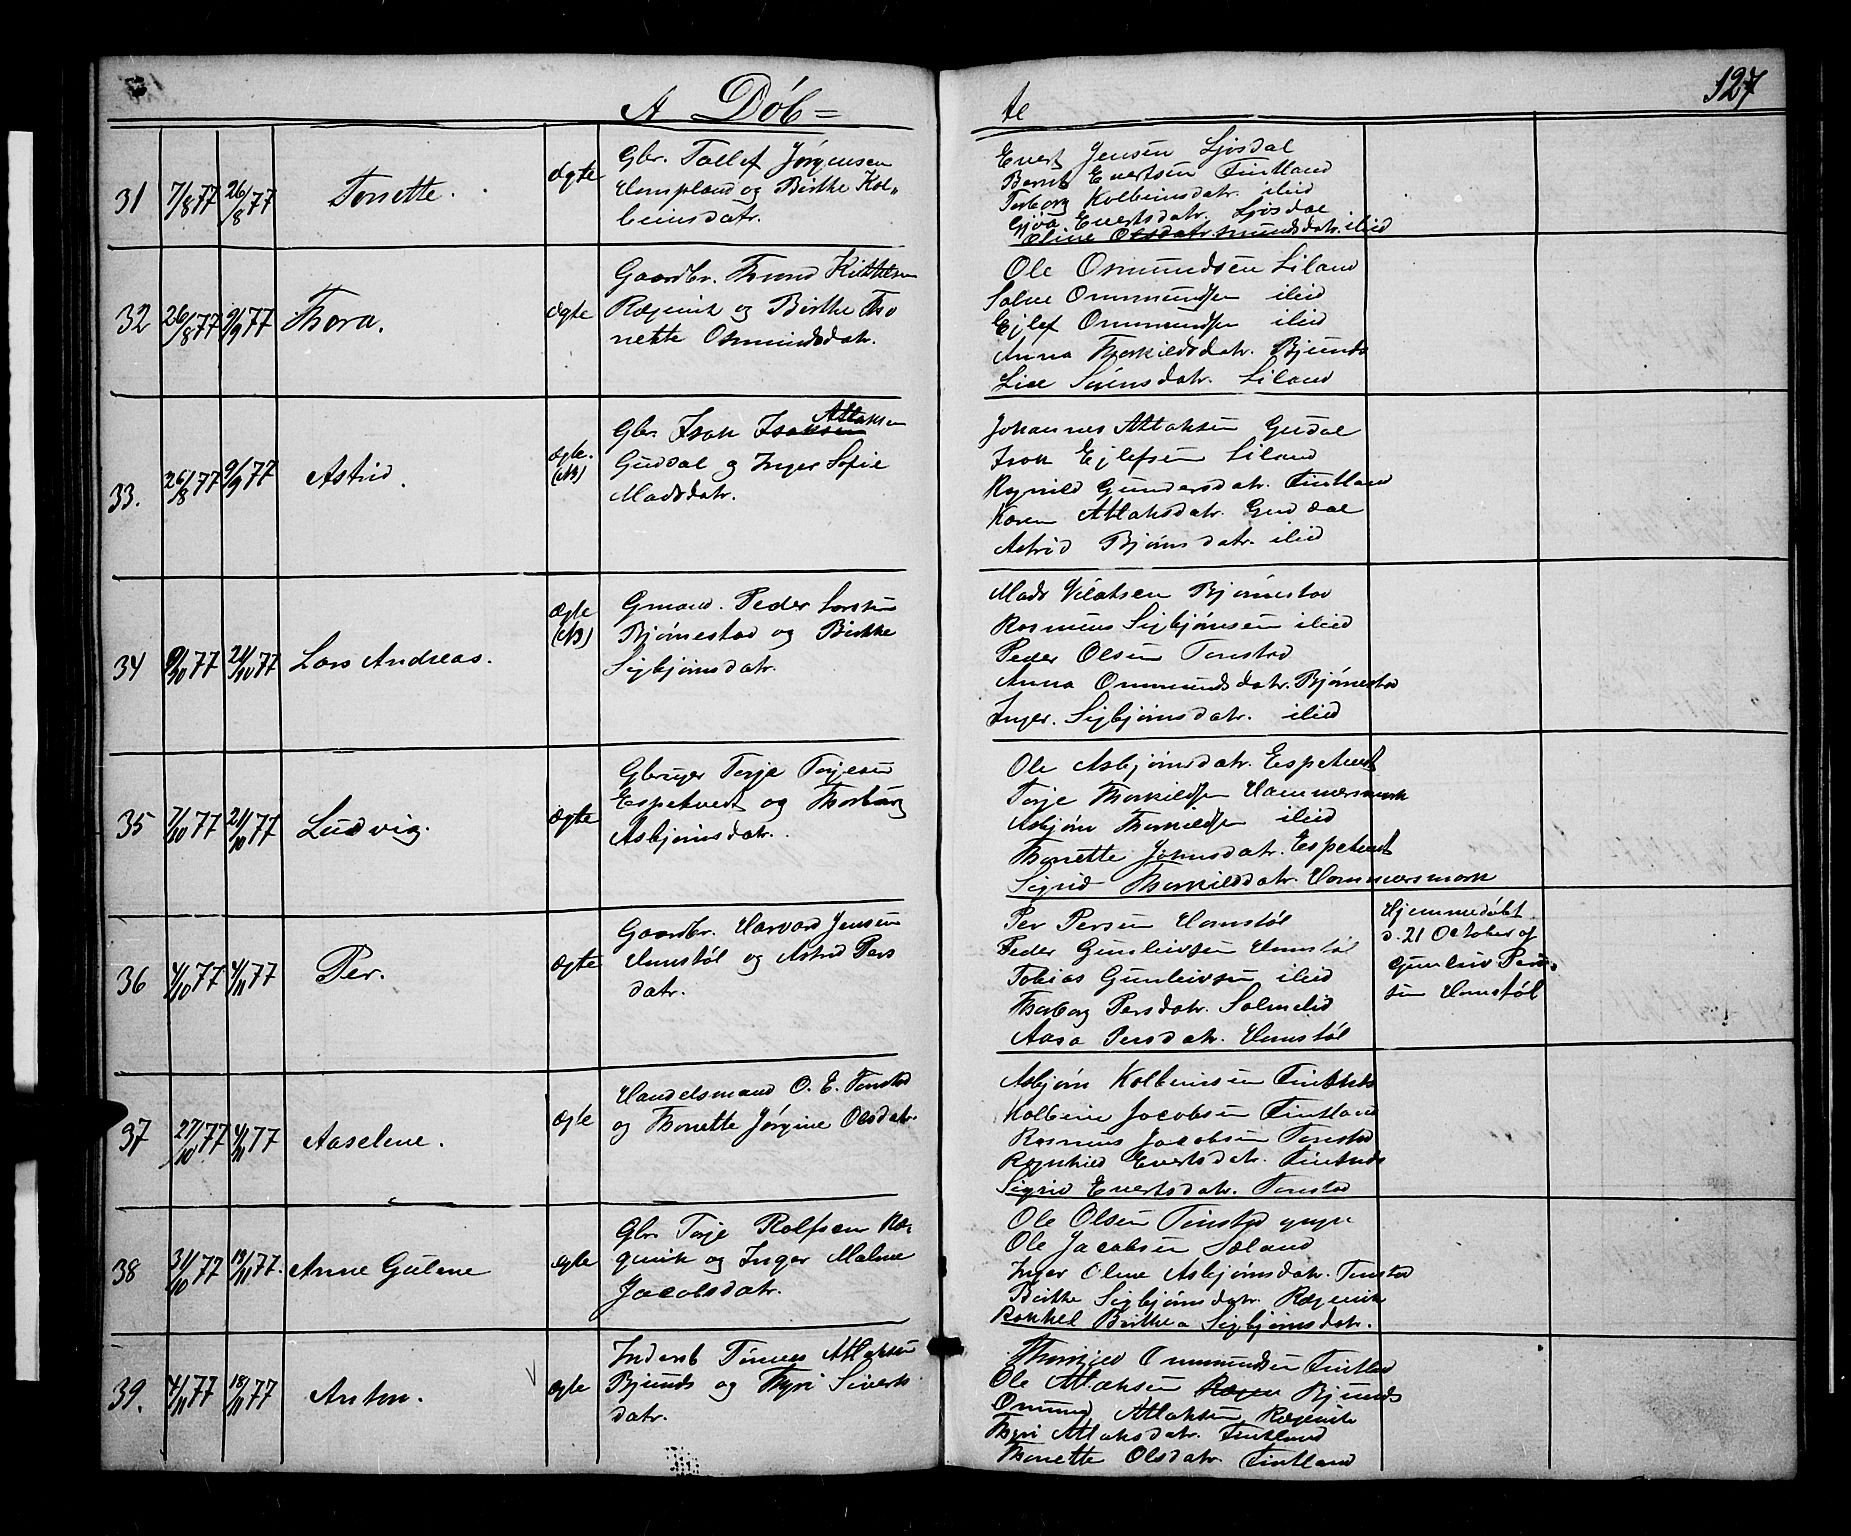 A Døb=
te
127
31 7/8 77 26/8 77 Tonette. ægte
Gbr. Tollef Jørgensen
Humpland og Birthe Kol-
beinsdatr.
Evert Jensen Ljosdal
Bernt Evertsen Fintland
Torborg Kolbeinsdatr. ibid
Gjøa Evertsdatr. Ljosdal
Oline Olsdatr. ibid
32 26/8 77 9/9 77 Thora. ægte
Gaardbr. Thund
Rægevik og Birthe Tho
nette Osmundsdatr.
Ole Osmundsen Liland
Salve Ommundsen ibid
Ejlef Ommundsen ibid
Anna Thorkildsdatr. Bjunds
Lise Sørensdatr. Liland
33. 26/8 77 9/9 77 Astrid. ægte. (NB)
Gbr. Isak Isaksen Atlaksen
Guddal og Inger Sofie
Madsdatr.
Johannes Atlaksen Gudal
Isak Ejlefsen Liland
Ragnild Gundersdatr. Fintland
Karen Atlaksdatr. Guddal
Astrid Bjørnsdatr. ibid
34 9/10 77 21/10 77 Lars Andreas. ægte (NB)
Gmand. Peder Larsen
Bjørnestad og Birthe
Sigbjørnsdatr.
Mads Vilatsen Bjørnestad
Rasmus Sigbjørnsen ibid
Peder Olsen Tonstad
Anna Ommundsdatr. Bjørnestad
Inger. Sigbjørnsdatr. ibid
35 7/10 77 21/10 77 Ludvig. ægte
Gbruger Torje Torjesen
Espetvedt og Thorborg
Asbjørnsdatr.
Ole Asbjørnsdatr. Espetvedt
Torje Thorkildsen Hammersmark
Asbjørn Thorkildsen ibid
Thonette Johnsdatr. Espetvedt
Sigrid Thorkildsdatr. Hammersmark
36 4/10 77 4/11 77 Per. ægte
Gaardbr. Harvard Jensen
Homstøl og Astrid Pers
datr.
Per Persen Homstøl
Peder Gunleivsen Homstøl
Tobias Gunleivsen ibid
Thorborg Persdatr. Salmelid
Aasa Persdatr. Homstøl
Hjemmedøbt
d. 21 October af
Gunleiv Per-
sen Homstøl
37 27/10 77 4/11 77 Aaselene. ægte
Handelsmand O. E. Tonstad
og Thonette Jørgine Olsdatr.
Asbjørn Kolbeinssen Fintlands
Kolbein Jacobsen Fintland
Rasmus Jacobsen Tonstad
Ragnhild Evertsdatr. Fintlands
Sigrid Evertsdatr. Tonstad
38 31/10 77 13/11 77. Anne Guline ægte
Gbr. Torje Rolfsen Ræ-
gevik og Inger Maline
Jacobsdatr.
Ole Olsen Tonstad yngre
Ole Jacobsen Sæland
Inger Oline Asbjørnsdatr. Tonstad
Birthe Sigbjørnsdatr. Rægevik
Rakkel Birthea Sigbjørnsdatr.
39. 4/11 77 18/11 77 Anton. ægte
Inderst Tønnes Atlaksen
Bjunds og Thyri Siverts
datr.
Thorkild Ommundsen Fintland
Ole Atlaksen Bjunds
Omund Atlaksen Rægevik
Thyri Atlaksdatr. Fintland
Thonette Olsdatr. Fintland